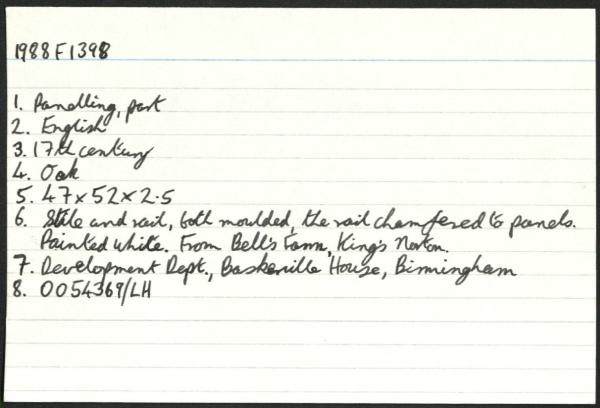 1988 F1398
1. Panelling, part
2. English
3. 17th century
4. Oak
5. 47 x 52 x 2.5
6. Stile and rail, both moulded, the rail chamfered to panels.
Painted white. From Bell's Farm, King's Norton.
7. Development Dept., Baskerville House, Birmingham
8. 0054369/LH